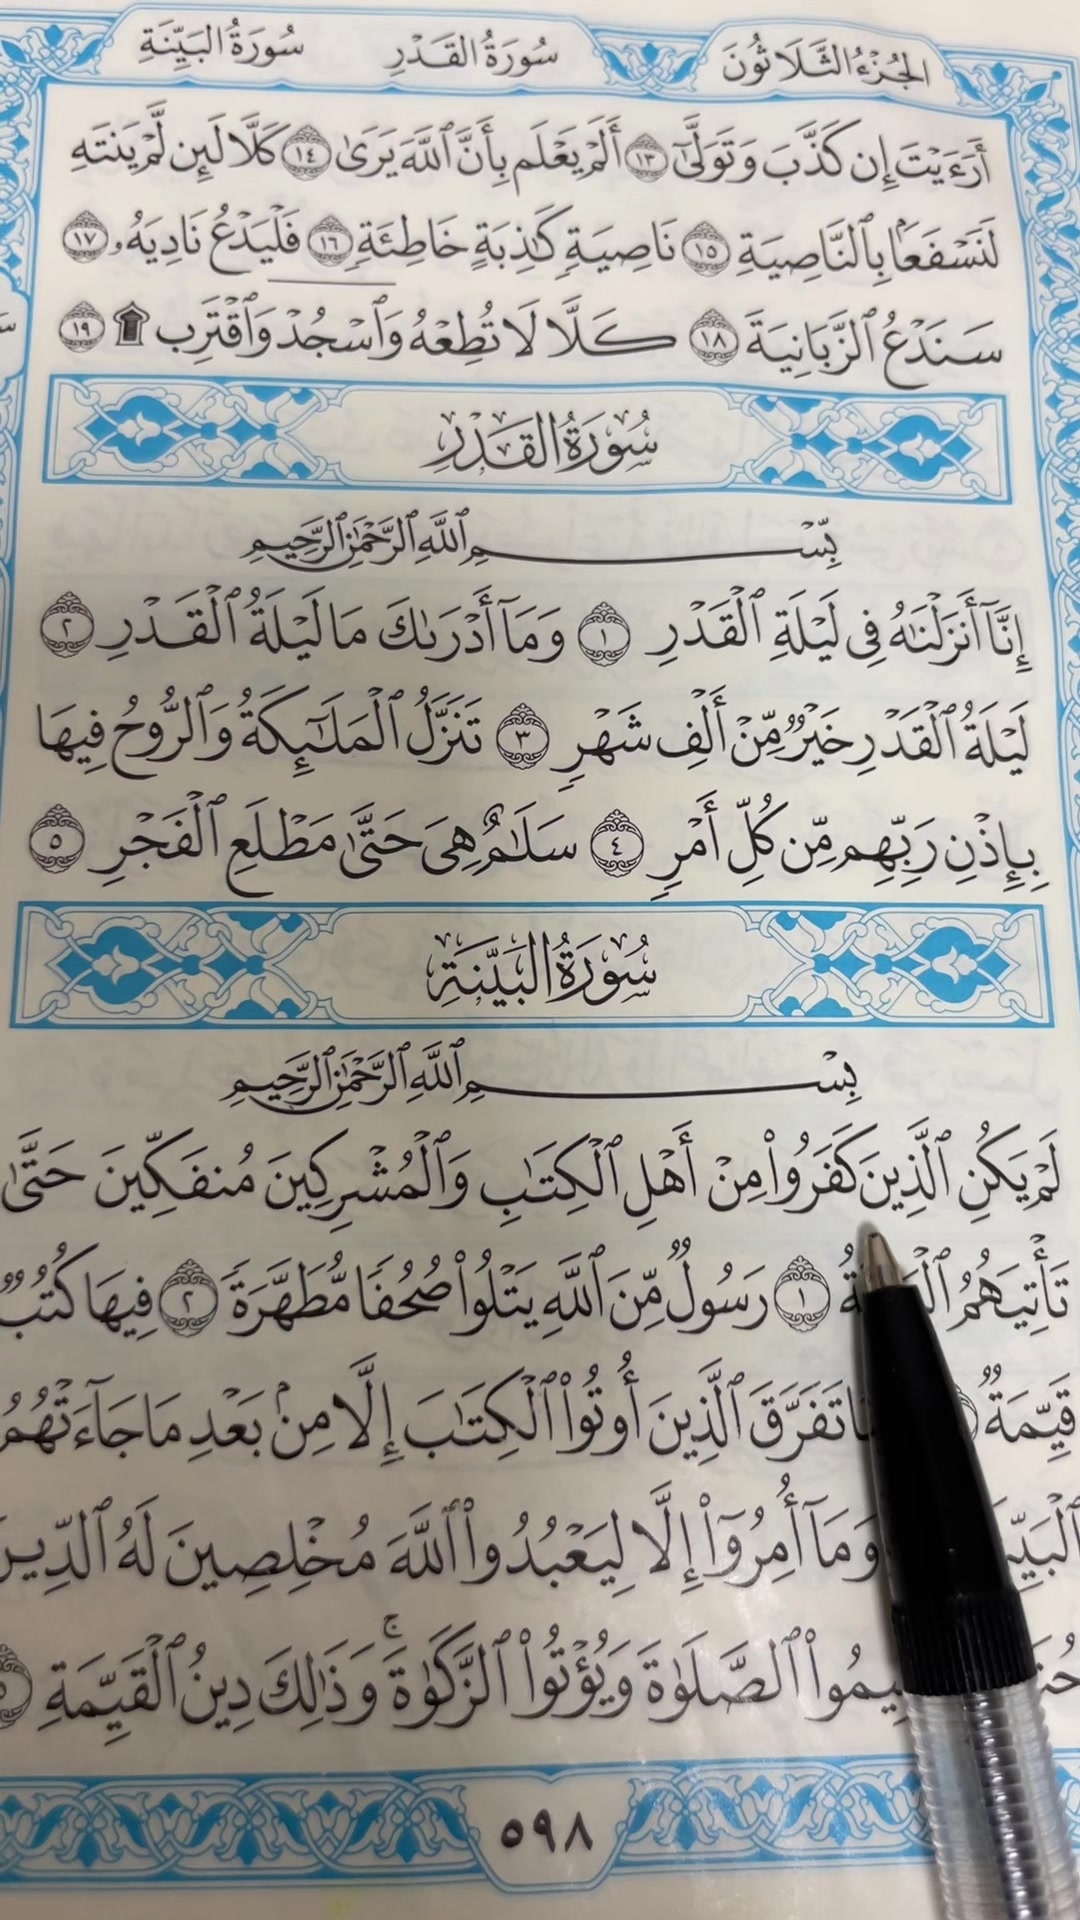 الجُزْءُ الثَّلَاثُونَ سُورَةُ القَدْرِ سُورَةُ البَيِّنَةِ
أَرَءَيْتَ إِن كَذَّبَ وَتَوَلَّىٰٓ ١٣ أَلَمْ يَعْلَم بِأَنَّ ٱللَّهَ يَرَىٰ ١٤ كَلَّا لَئِن لَّمْ يَنتَهِ
لَنَسْفَعَۢا بِٱلنَّاصِيَةِ ١٥ نَاصِيَةٍ كَٰذِبَةٍ خَاطِئَةٍ ١٦ فَلْيَدْعُ نَادِيَهُۥ ١٧
سَنَدْعُ ٱلزَّبَانِيَةَ ١٨ كَلَّا لَا تُطِعْهُ وَٱسْجُدْ وَٱقْتَرِب ۩ ١٩
سُورَةُ القَدْرِ
بِسْمِ ٱللَّهِ ٱلرَّحْمَٰنِ ٱلرَّحِيمِ
إِنَّآ أَنزَلْنَٰهُ فِى لَيْلَةِ ٱلْقَدْرِ ١ وَمَآ أَدْرَىٰكَ مَا لَيْلَةُ ٱلْقَدْرِ ٢
لَيْلَةُ ٱلْقَدْرِ خَيْرٌ مِّنْ أَلْفِ شَهْرٍ ٣ تَنَزَّلُ ٱلْمَلَٰٓئِكَةُ وَٱلرُّوحُ فِيهَا
بِإِذْنِ رَبِّهِم مِّن كُلِّ أَمْرٍ ٤ سَلَٰمٌ هِىَ حَتَّىٰ مَطْلَعِ ٱلْفَجْرِ ٥
سُورَةُ البَيِّنَةِ
بِسْمِ ٱللَّهِ ٱلرَّحْمَٰنِ ٱلرَّحِيمِ
لَمْ يَكُنِ ٱلَّذِينَ كَفَرُوا۟ مِنْ أَهْلِ ٱلْكِتَٰبِ وَٱلْمُشْرِكِينَ مُنفَكِّينَ حَتَّىٰ
تَأْتِيَهُمُ ١ رَسُولٌ مِّنَ ٱللَّهِ يَتْلُوا۟ صُحُفًا مُّطَهَّرَةً ٢ فِيهَا كُتُبٌ
قَيِّمَةٌ تَفَرَّقَ ٱلَّذِينَ أُوتُوا۟ ٱلْكِتَٰبَ إِلَّا مِنۢ بَعْدِ مَا جَآءَتْهُمُ
وَمَآ أُمِرُوٓا۟ إِلَّا لِيَعْبُدُوا۟ ٱللَّهَ مُخْلِصِينَ لَهُ ٱلدِّينَ
ٱلصَّلَوٰةَ وَيُؤْتُوا۟ ٱلزَّكَوٰةَ ۚ وَذَٰلِكَ دِينُ ٱلْقَيِّمَةِ ٥
٥٩٨